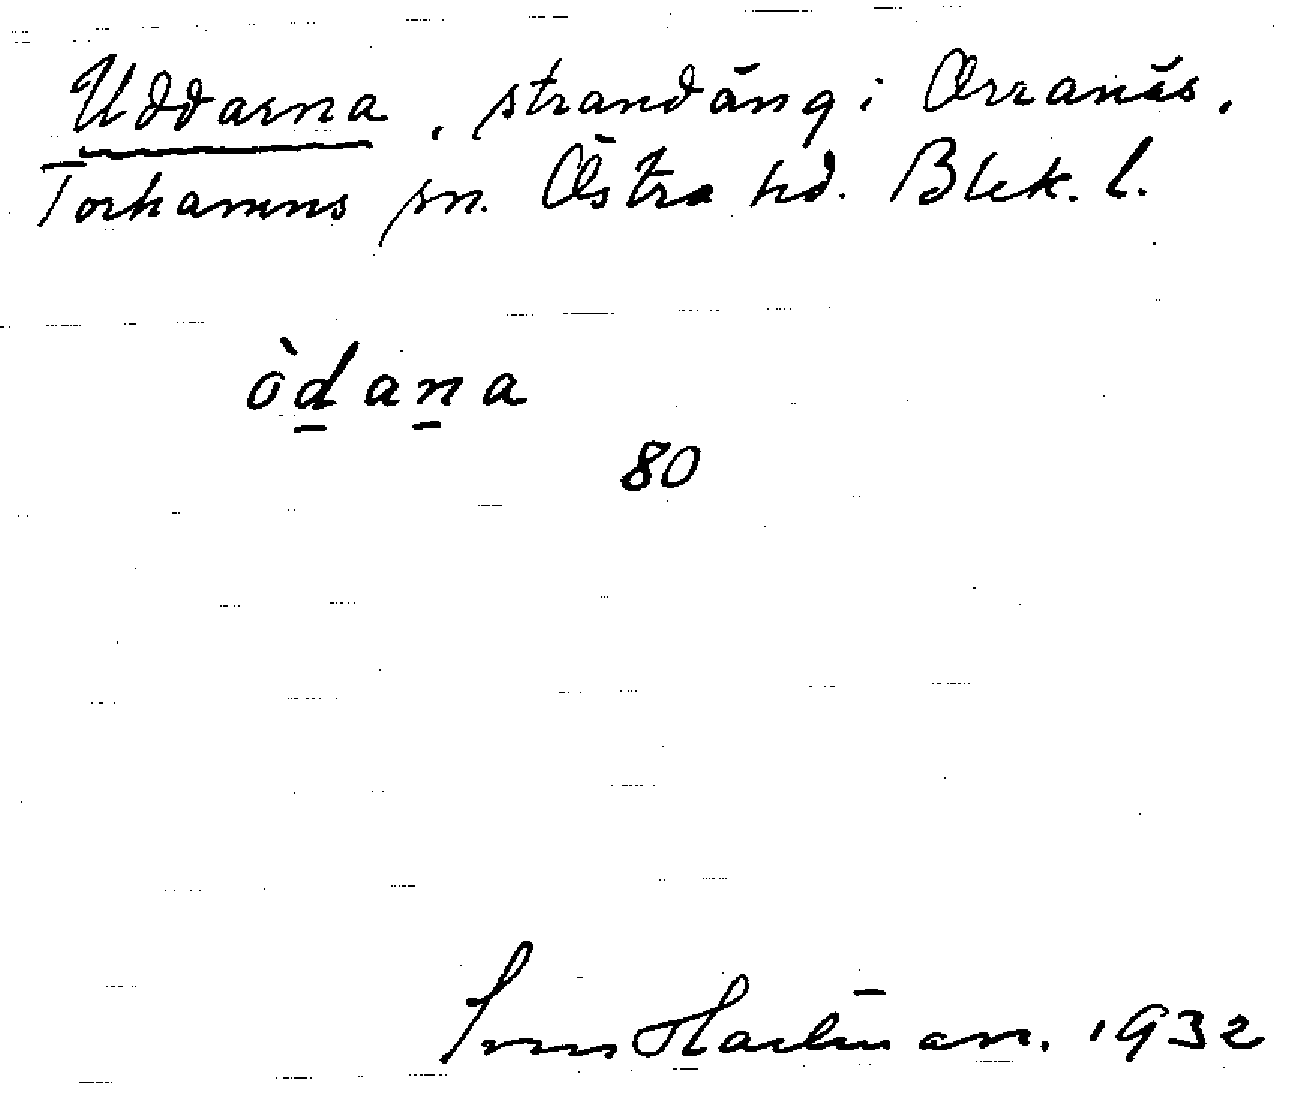 Uddarna, strandäng i Orranäs,
Torhamns sn. Östra hd. Blek. l.
òdana
80
Sven Hartman. 1932